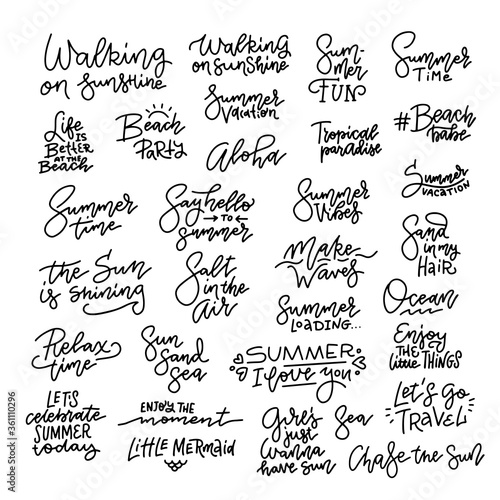 Walking
on sunshine
Walking
on sunshine
Sum-
mer
FUN
Summer
Time
Life is
Better
at the
Beach
Beach
Party
Summer
Vacation
Aloha
Tropical
paradise
#Beach
babe
Summer
time
Say hello
to
summer
Summer
Vibes
Summer
VACATION
Sand
in my
Hair
the Sun
is shining
Salt
in the
Air
Make
Waves
Ocean
Summer
LOADING...
Relax
time
Sun
Sand
sea
SUMMER
I love you
Enjoy
THE
little THINGS
LET'S
celebrate
SUMMER
today
ENJOY THE
moment
Little Mermaid
Girl's
just
wanna
have sun
Sea
Let's Go
TRAVEL
Chase the Sun
Adobe Stock | #361110296